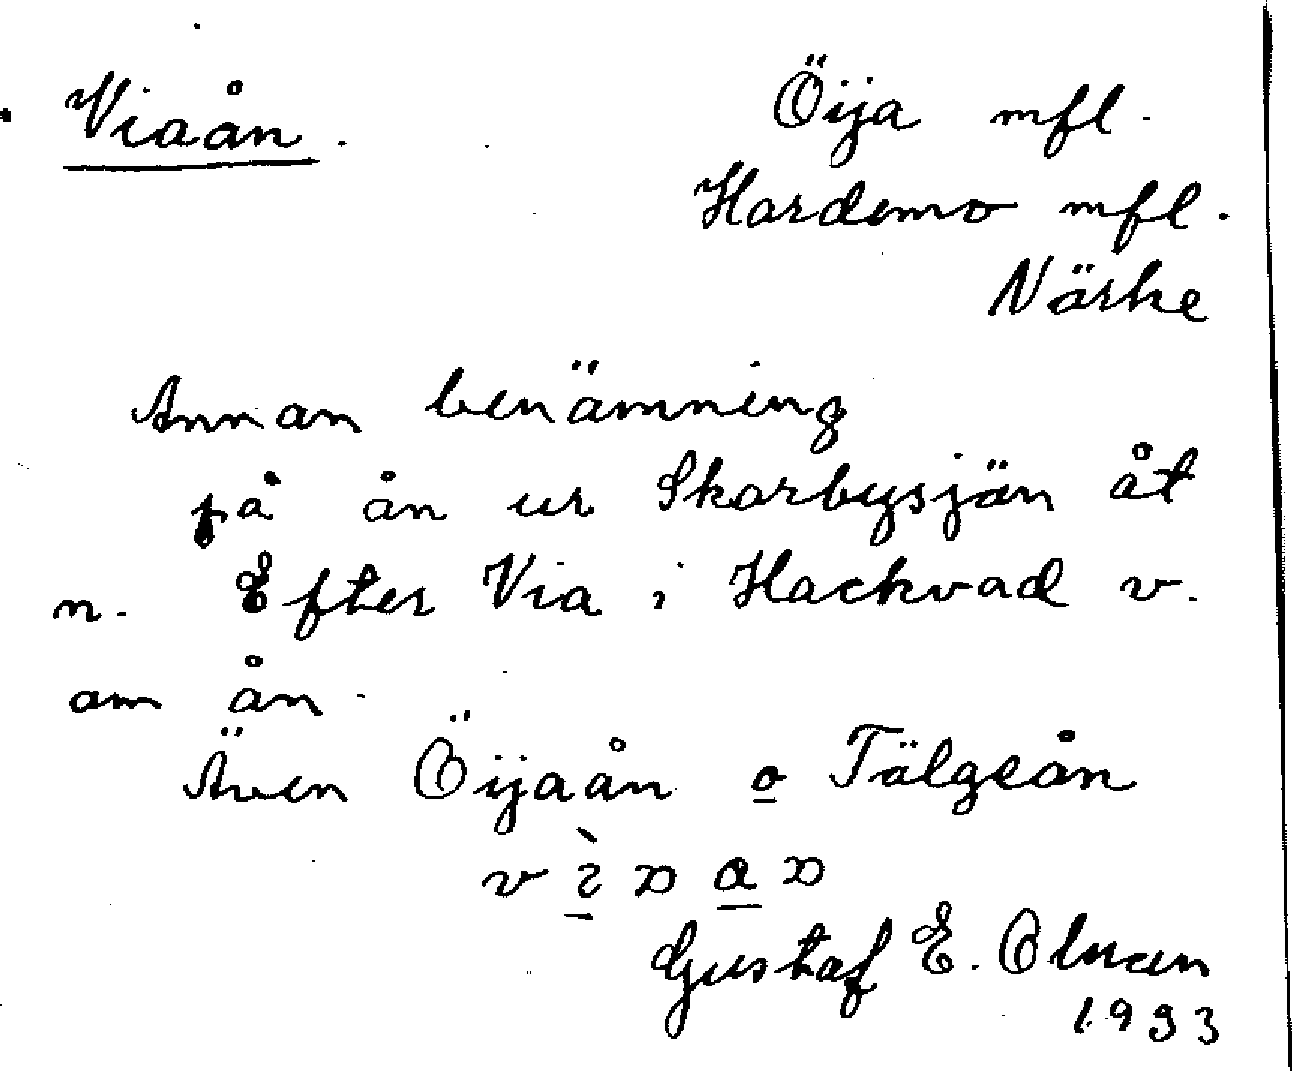 Viaån.
Öija mfl.
Hardemo mfl.
Närke
Annan benämning
på ån ur Skarbysjön åt
n. Efter Via i Hackvad v.
om ån.
Även Öijaån o Tälgeån
Gustaf E.
1933